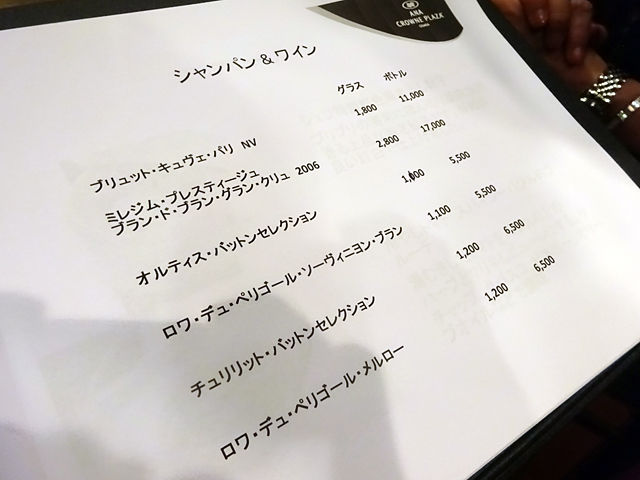 ANA
CROWNE PLAZA
シャンパン & ワイン
グラス ボトル
ブリュット・キュヴェ・パリ NV 1,800 11,000
ミレジム・プレスティージュ
ブラン・ド・ブラン・グラン・クリュ 2006 2,800 17,000
オルティス・バットンセレクション 5,500
ロワ・デュ・ペリゴール・ソーヴィニヨン・ブラン 1,100 5,500
チュリリット・バットンセレクション 1,200 6,500
ロワ・デュ・ペリゴール・メルロー 1,200 6,500